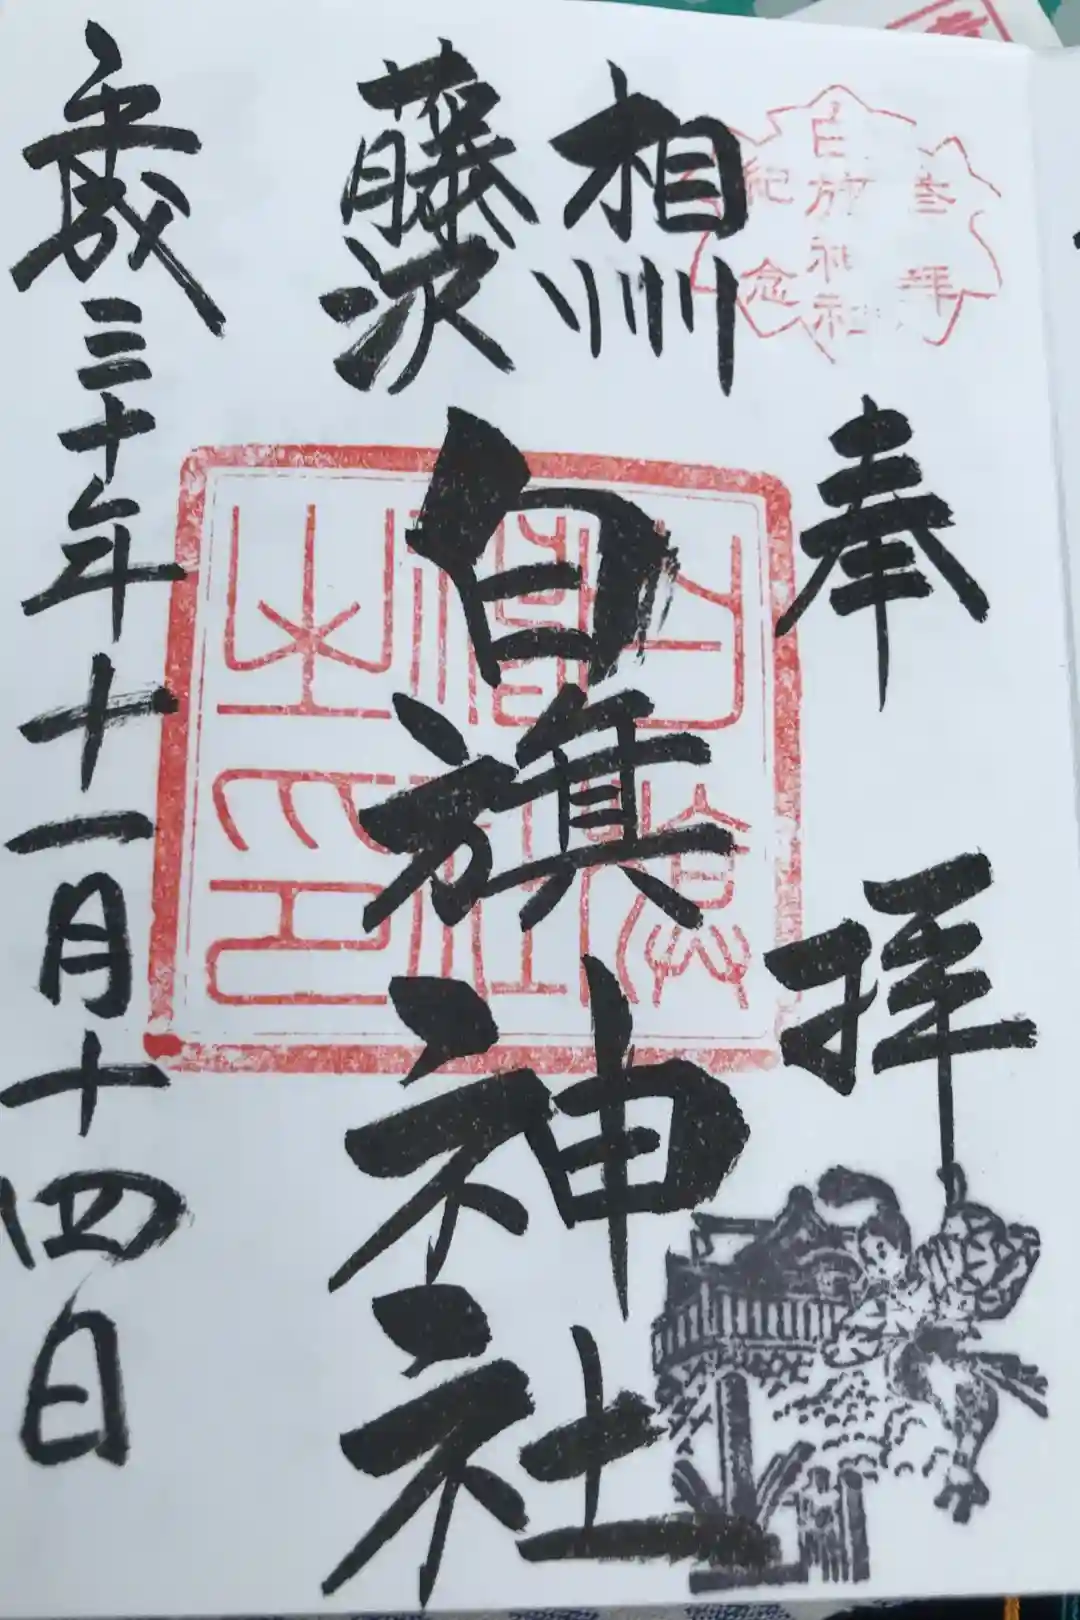 参拝
白旗神社
紀念
奉拝
相州
藤沢
白旗神社
平成三十年十一月十四日